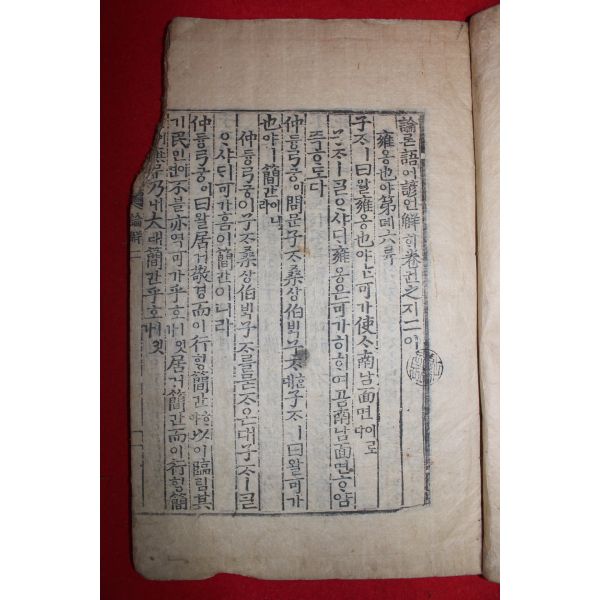 論론語어諺언解ᄒᆡ卷권之지二이
雍옹也야第뎨六륙
子ᄌᆞㅣ曰왈雍옹也야ᄂᆞᆫ可가使ᄉᆞ南남面면이로다
子ᄌᆞㅣᄀᆞᆯᄋᆞ샤ᄃᆡ雍옹은可가히ᄒᆞ여곰南남面면ᄒᆞ얌
즉ᄒᆞ도다
仲듕弓궁이問문子ᄌᆞ桑상伯ᄇᆡᆨ子ᄌᆞᄒᆞᆫ대子ᄌᆞㅣ曰왈可가
也야ㅣ簡간이니라
仲듕弓궁이子ᄌᆞ桑상伯ᄇᆡᆨ子ᄌᆞ를묻ᄌᆞ온대子ᄌᆞㅣᄀᆞᆯ
ᄋᆞ샤ᄃᆡ可가홈이簡간이니라
仲듕弓궁이曰왈居거敬경而이行ᄒᆡᆼ簡간ᄒᆞ야以이臨림其
기民민이면不블亦역可가乎호ㅣ잇가居거簡간而이行ᄒᆡᆼ簡
無무乃내大태簡간乎호ㅣ잇가
論解二